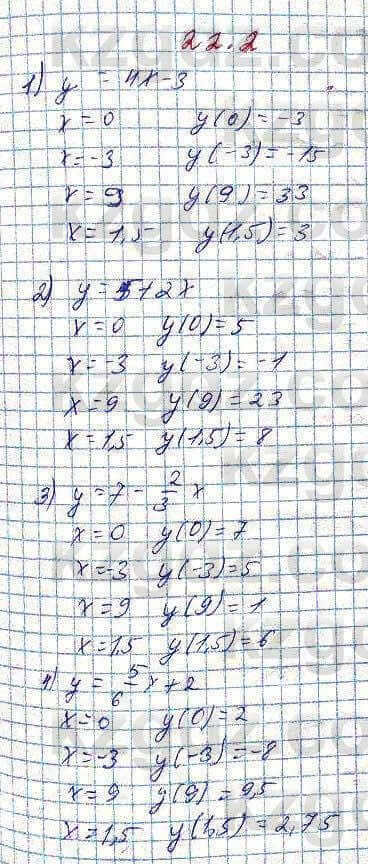 22.2
1) y = 4x-3
x = 0 y(0) = -3
x = -3 y(-3) = -15
x = 9 y(9) = 33
x = 1,5 y(1,5) = 3
2) y = 5+2x
x = 0 y(0) = 5
x = -3 y(-3) = -1
x = 9 y(9) = 23
x = 1,5 y(1,5) = 8
3) y = 7 - 2/3 x
x = 0 y(0) = 7
x = -3 y(-3) = 5
x = 9 y(9) = 1
x = 1,5 y(1,5) = 6
4) y = 5/6 x + 2
x = 0 y(0) = 2
x = -3 y(-3) = -8
x = 9 y(9) = 9,5
x = 1,5 y(1,5) = 2,75